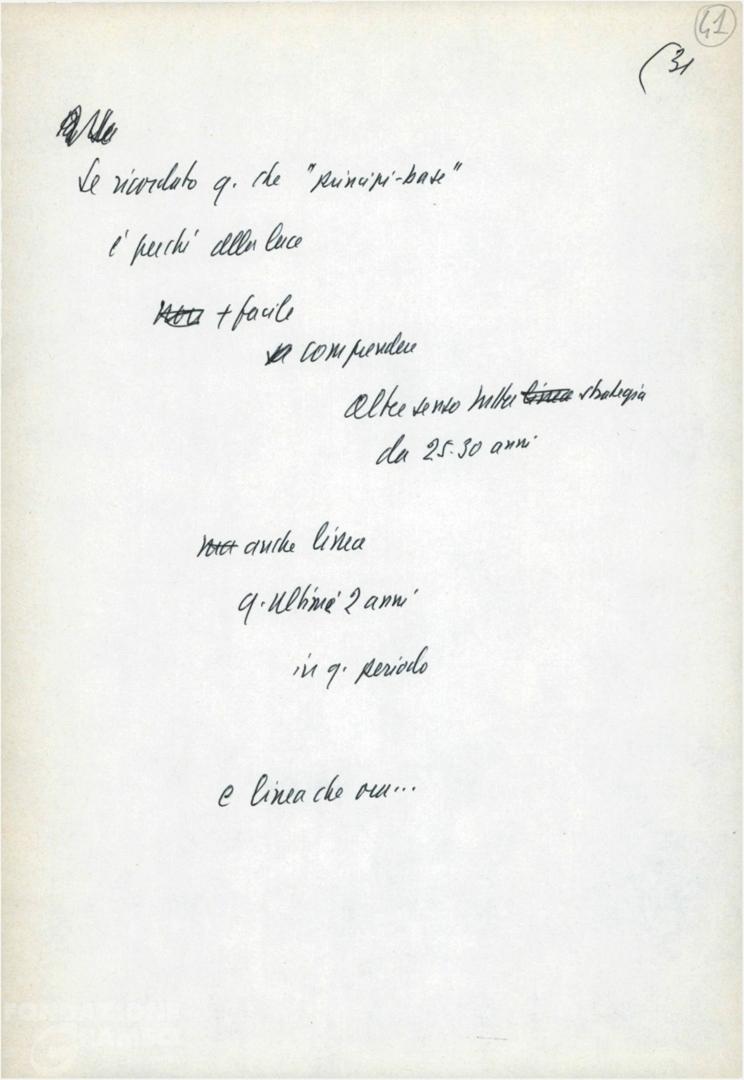 41
(31
Se ricordato q. che "principi-base"
è perché alla luce
non + facile
comprendere
oltre senso tutta linea strategia
da 25-30 anni
ma anche linea
q. ultimi 2 anni
in q. periodo
e linea che ora...
FONDAZIONE
GRAMSCI